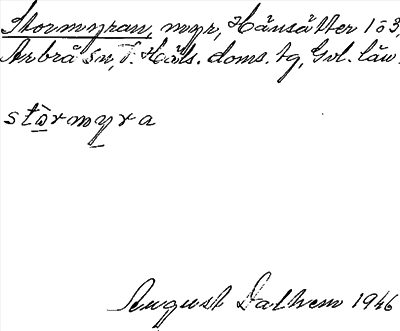 Stormyran, myr, Hänsätter 1ō3,
Arbrå sn, V. Häls. doms. tg, Gvl. län.
stòrmyra
August Dalhem 1946